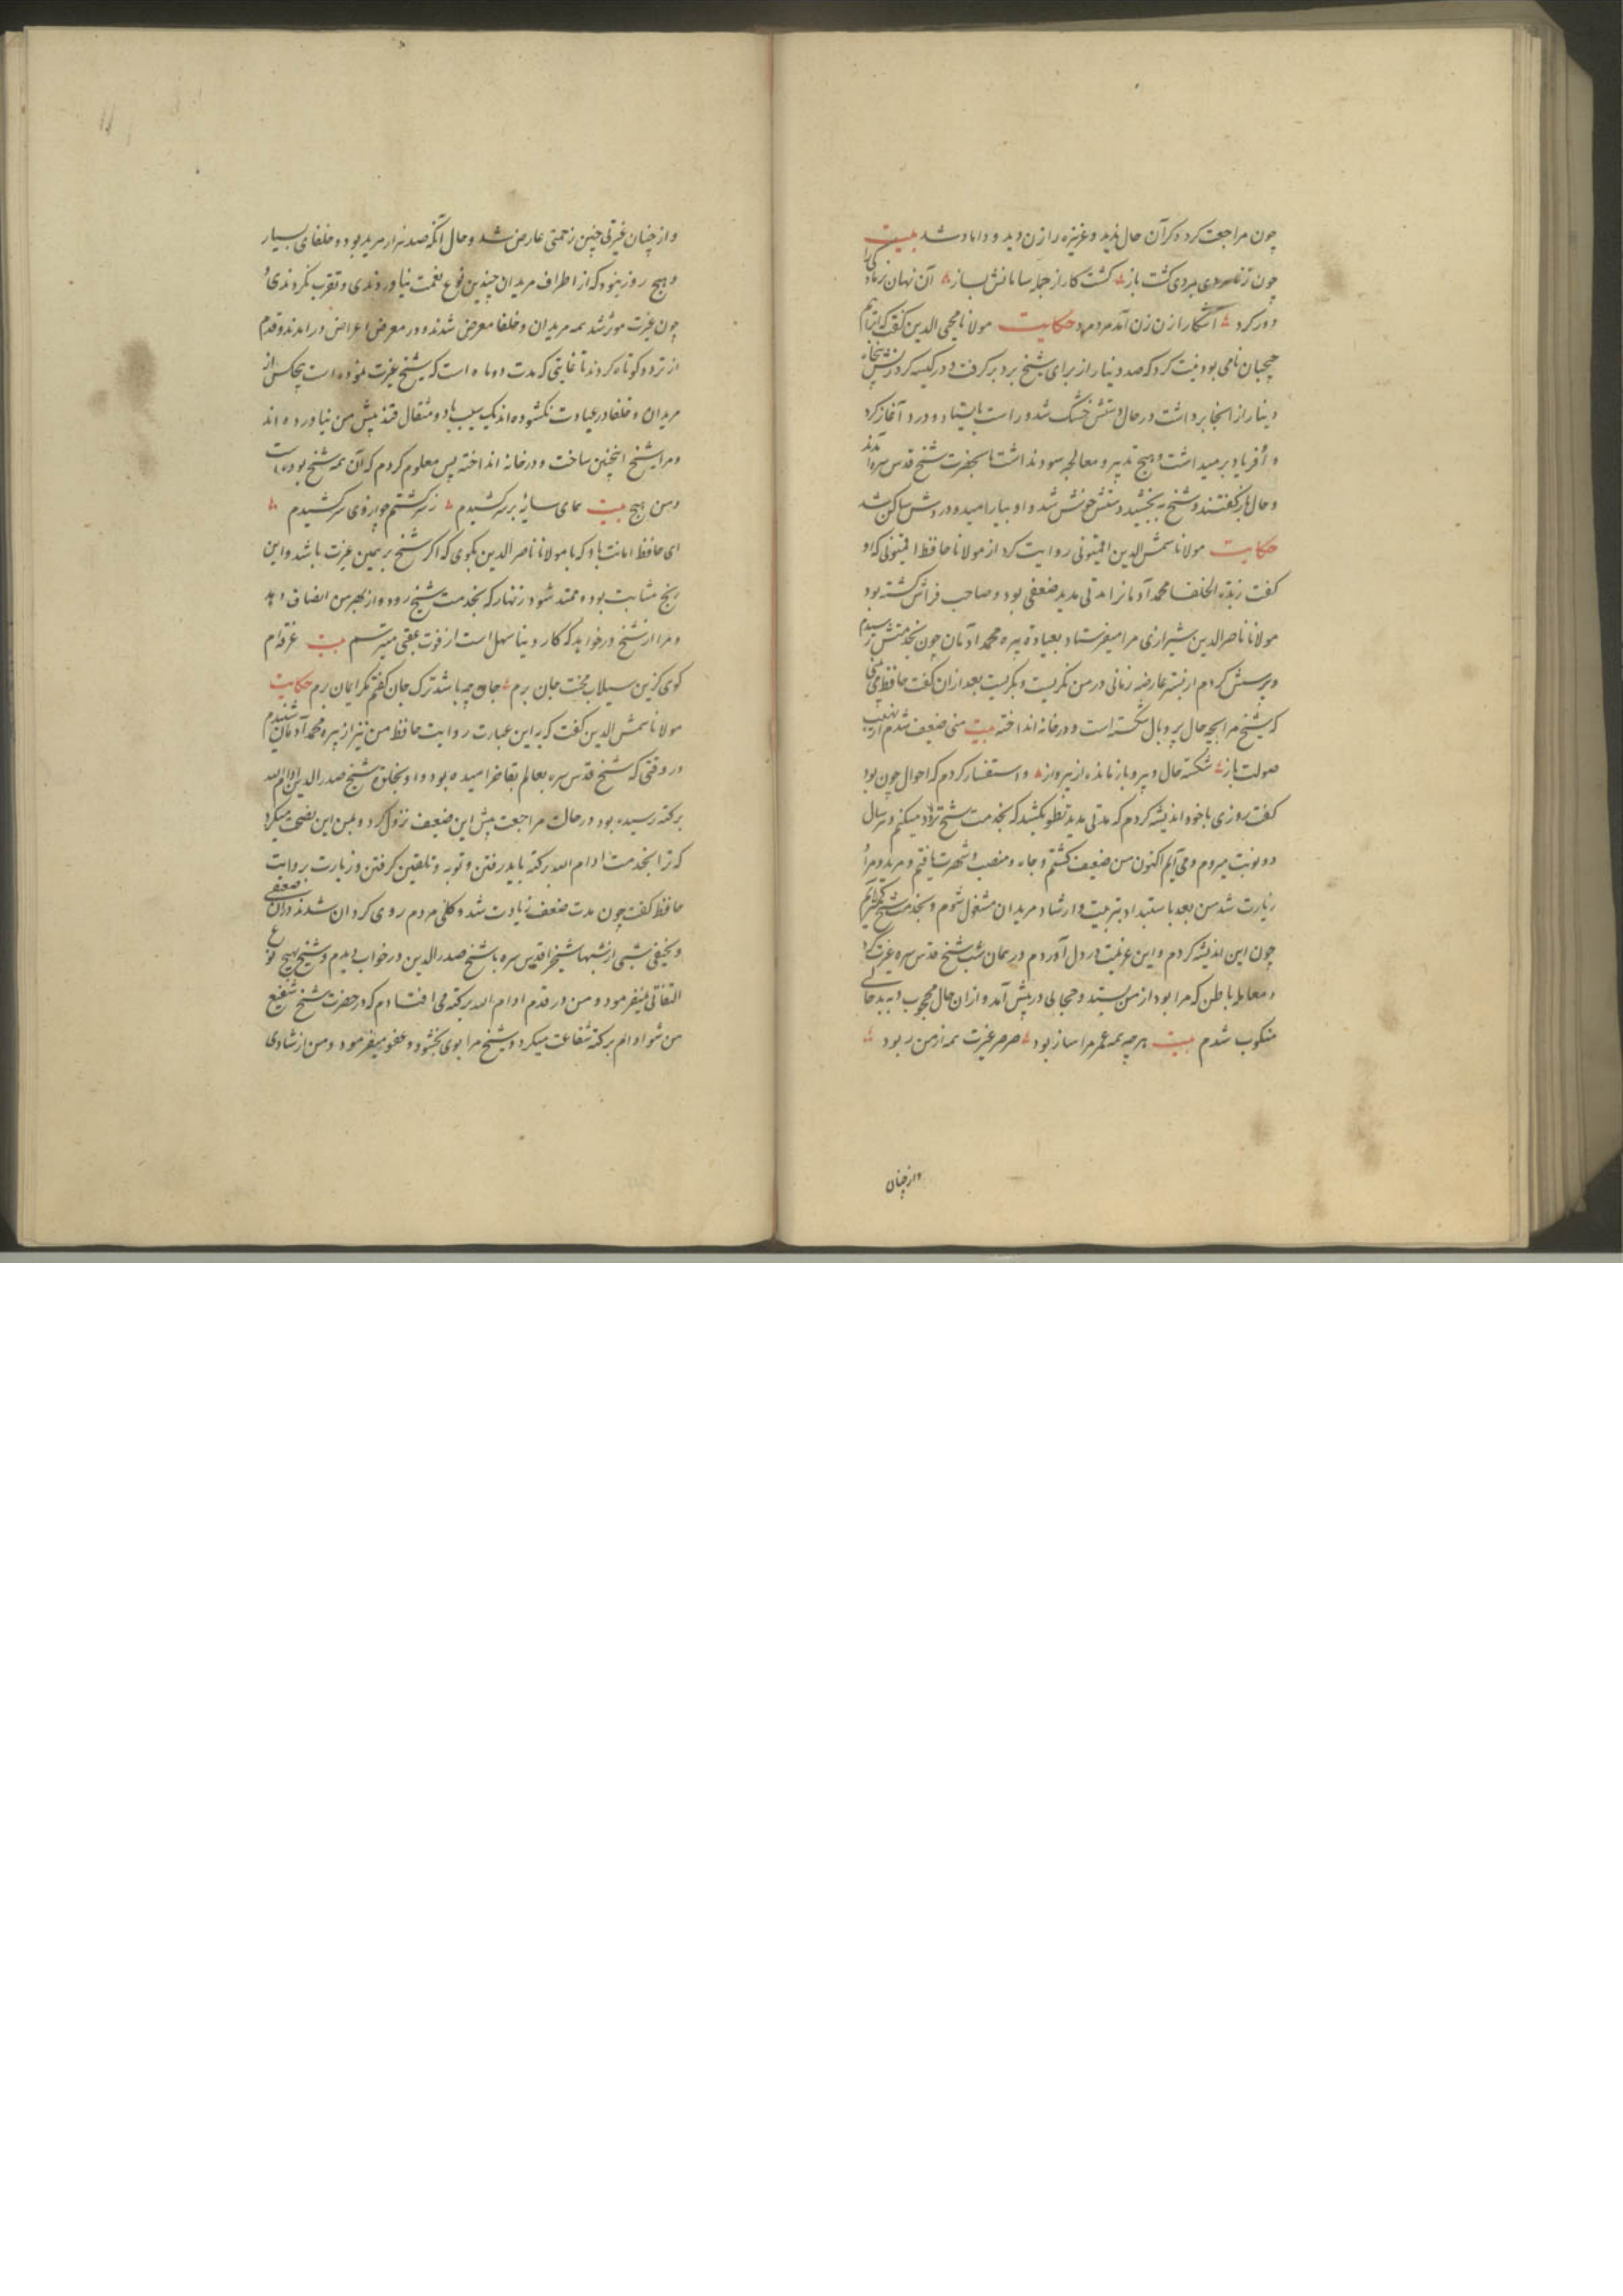 چون مراجعت کرد دکر آن حال ندید و عزیزه را زن دید و دلشاد شد بیت
چون ز نامردی بمردی کشت باز کشت کار از جمله سامانش بساز آن نهان
دور کرد آشکارا زن زن آمد مرد مرد حکایت مولانا محیی الدین کفت که ابراهیم
نامی بود نیت کرد که صد دینار از برای شیخ برد برکرفت و در کیسه کرد پنجاه
دینار از انجا برداشت در حال دستش خشک شد و راست بایستاد و درد آغاز کرد
و او فریاد برمیداشت و هیچ تدبیر و معالجه سود نداشت تا بحضرت شیخ قدس سره آمدند
و حال باز کفتند و شیخ به بخشید دستش خوش شد و او بیارامید و دردش ساکن شد
حکایت مولانا شمس الدین اقمیونی روایت کرد از مولانا حافظ اقمیونی که او
کفت زبدة الخلفا محمد آدمانرا مدتی مدید ضعفی بود و صاحب فراش کشته بود
مولانا ناصر الدین شیرازی مرا میفرستاد بعیادة پیره محمد آدمان چون بخدمتش رسیدم
و پرسش کردم از بسته عارضه زمانی در من نکریست و بکریست بعد از آن کفت حافظ می بینی
که شیخ مرا بچه حال پر و بال شکسته است و در خانه انداخته بیت منی ضعیف شدم از نهیب
صولت باز شکسته حال و پر و باز مانده از پرواز و استفسار کردم که احوال چون بود
کفت روزی باخود اندیشه کردم که مدتی مدید بتطویل کشید که بخدمت شیخ تردد میکنم و هر سال
دو نوبت میروم و می آیم اکنون من ضعیف کشتم و جاه و منصب و شهرت یافتم و مرید و مرا
زیارت شد من بعد باستبداد بتربیت و ارشاد مریدان مشغول شوم و بخدمت شیخ کمتر آیم
چون این اندیشه کردم و این عزیمت در دل آوردم در همان شب شیخ قدس سره غیرت کرد
و معامله باطن که مرا بود از من بستد و حجابی در پیش آمد و از ان حال محجوب و به بد حالی
منکوب شدم بیت هر چه همه عمر مرا ساز بود صرصر غیرت همه از من ربود
و از چنان
و از چنان غیرتی چنین زحمتی عارض شد و حال آنکه صد هزار مرید بود و خلفای بسیار
و هیچ روز نبود که از اطراف مریدان چندین نوع نعمت نیاوردندی و تقرب نکردندی
چون غیرت مؤثر شد همه مریدان و خلفا معرض شدند و در معرض اعراض در آمدند و قدم
از تردد کوتاه کردند تا غایتی که مدت دو ماه است که شیخ غیرت نموده است هیچکس از
مریدان و خلفا در عیادت نکشوده اند یک سیب یا دو مثقال قند پیش من نیاورده اند
و مرا شیخ اینچنین ساخت و در خانه انداخته پس معلوم کردم که آن همه شیخ بود
و من هیچ بیت همای سایه بر سر کشیدم ز سر کشتم چو از وی سر کشیدم
ای حافظ امانت باد که با مولانا ناصر الدین بکوی که اکر شیخ بر همین غیرت باشد و این
رنج مثابت بود و ممتد شود زنهار که بخدمت شیخ رود و از بهر من انصاف دهد
و مرا از شیخ درخواهد که کار دنیا سهل است از فوت عقبی میترسم بیت غرقه ام
کوی کزین سیلاب محنت جان برم جان چه باشد ترک جان کفتم مکر ایمان برم حکایت
مولانا شمس الدین کفت که به این عبارت روایت حافظ من نیز از پیره محمد آدمان شنیدم
در وقتی که شیخ قدس سره بعالم بقا خرامیده بود و او بخلوة شیخ صدر الدین ادام الله
برکته رسیده بود در حالت مراجعت پیش این ضعیف نزول کرد و بمن این نصیحت میکرد
که ترا بخدمت ادام الله برکته باید رفتن و توبه و تلقین کرفتن و زیارت بروایت
حافظ کفت چون مدت ضعف زیادت شد و کلی مردم روی کردان شدند در آن ضعفی
و نحیفی شبی از شبها شیخ را قدس سره با شیخ صدر الدین در خواب دیدم و شیخ بهیچ نوع
التفاتی نمیفرمود و من در قدم ادام الله برکته می افتادم که در حضرت شیخ شفیع
من شو ادام برکته شفاعت میکرد و شیخ مرا بوی بخشود و عفو میفرمود و من از شادی